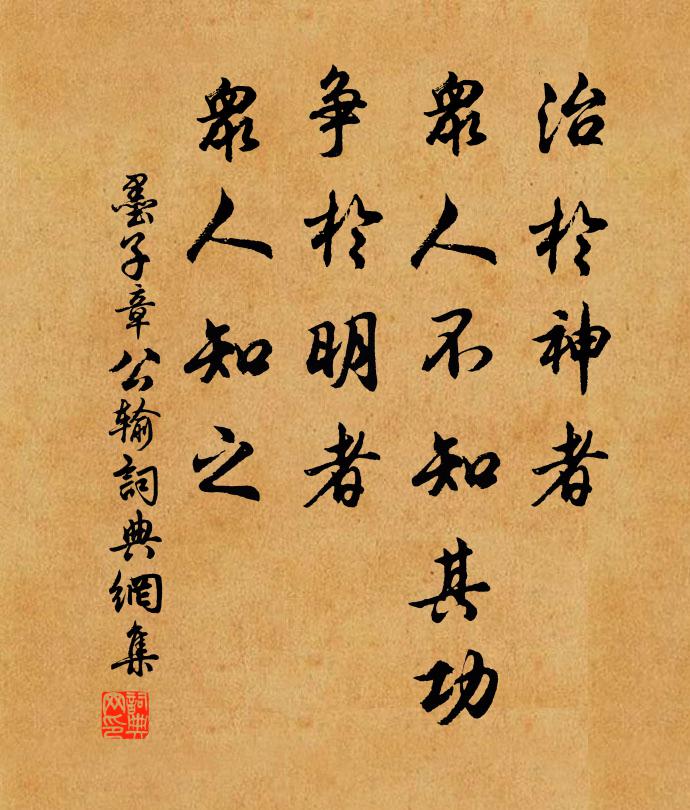 治於神者
眾人不知其功
争於明者
眾人知之
墨子章公输詞典網集
詞典网印